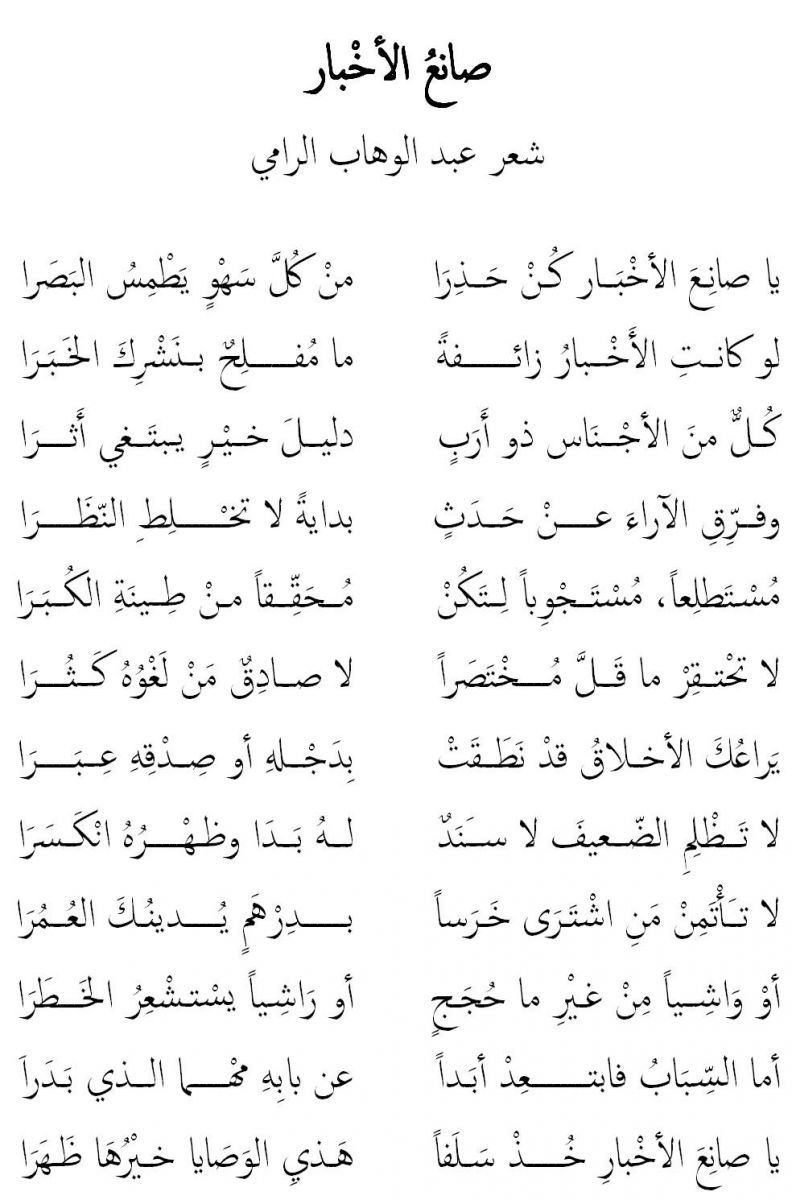 صانعُ الأخْبار
شعر عبد الوهاب الرامي
يا صانِعَ الأخْبَار كُنْ حَذِرَا منْ كُلَّ سَهْوٍ يَطْمِسُ البَصَرا
لو كانتِ الأَخْبارُ زائفةً ما مُفلِحٌ بنَشْرِكَ الخَبَرَا
كُلٌّ منَ الأجْنَاس ذو أَرَبٍ دليلَ خيْرٍ يبتَغي أَثرَا
وفرِّقِ الآراءَ عنْ حَدَثٍ بدايةً لا تخْلِطِ النّظَرَا
مُسْتَطلِعاً، مُسْتَجْوِباً لِتَكُنْ مُحَقِّقاً منْ طِينَةِ الكُبَرَا
لا تحْتقِرْ ما قَلَّ مُخْتَصَراً لا صادِقٌ مَنْ لَغْوُهُ كَثُرَا
يَراعُكَ الأخلاقُ قدْ نَطَقَتْ بِدَجْلهِ أو صِدْقِهِ عِبَرَا
لا تَظْلِمِ الضّعيفَ لا سنَدٌ لهُ بَدَا وظهْرُهُ انْكَسَرَا
لا تَأْتَمِنْ مَنِ اشْتَرَى خَرَساً بدِرْهَمٍ يُدينُكَ العُمُرَا
أوْ وَاشِياً مِنْ غيْرِ ما حُجَجٍ أو رَاشِياً يسْتشْعِرُ الخَطَرَا
أما السِّبَابُ فابتعِدْ أبَداً عن بابِهِ مهْما الذي بَدَراَ
يا صانِعَ الأخْبارِ خُذْ سَلَفاً هَذي الوَصَايا خيْرُهَا ظَهَرَا